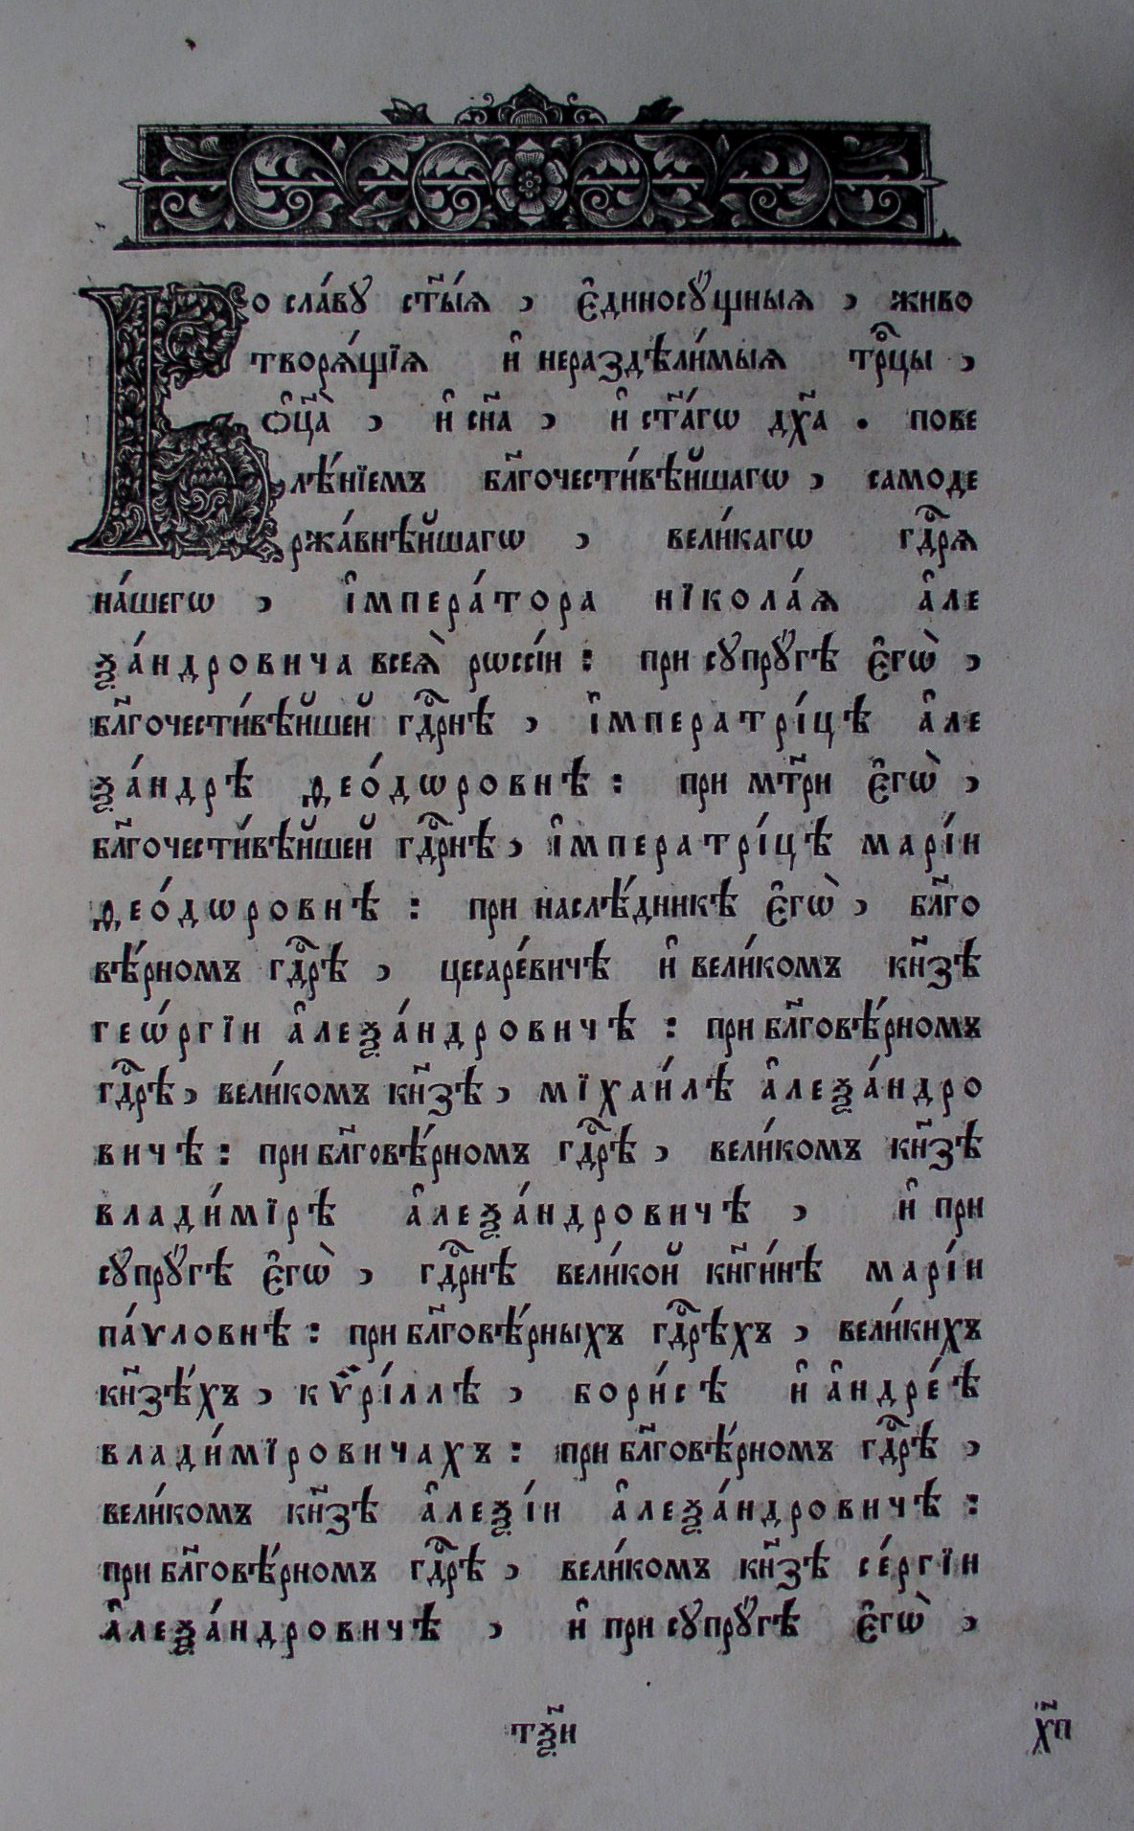 Во сла́вꙋ ст҃ы́ѧ , є҆диносꙋ́щныѧ , живо
творѧ́щїѧ и҆ нераздѣли́мыѧ трⷪ҇цы ,
ѻ҆ц҃а̀ , и҆ сн҃а , и҆ ст҃а́гѡ дх҃а . пове
лѣ́нїемъ бл҃гочести́вѣйшагѡ , самоде
ржа́внѣйшагѡ , вели́кагѡ гдⷭ҇рѧ
на́шегѡ , і҆мпера́тора нїкола́ѧ а҆ле
ѯа́ндровича всеѧ̀ рѡссі́и : при сꙋпрꙋ́гѣ є҆гѡ̀ ,
бл҃гочести́вѣйшей гдⷭ҇рнѣ , і҆мператрі́цѣ а҆ле
ѯа́ндрѣ ѳео́дѡровнѣ : при мт҃ри є҆гѡ̀ ,
бл҃гочести́вѣйшей гдⷭ҇рнѣ , і҆мператрі́цѣ марі́и
ѳео́дѡровнѣ : при наслѣ́дникѣ є҆гѡ̀ , бл҃го
вѣ́рномъ гдⷭ҇рѣ , цесаре́вичѣ и҆ вели́комъ кн҃зѣ
геѡ́ргїи а҆леѯа́ндровичѣ : при бл҃говѣ́рномъ
гдⷭ҇рѣ , вели́комъ кн҃зѣ , мїхаи́лѣ а҆леѯа́ндро
вичѣ : при бл҃говѣ́рномъ гдⷭ҇рѣ , вели́комъ кн҃зѣ
влади́мїрѣ а҆леѯа́ндровичѣ , и҆ при
сꙋпрꙋ́гѣ є҆гѡ̀ , гдⷭ҇рнѣ вели́кой кн҃ги́нѣ марі́и
па́ѵловнѣ : при бл҃говѣ́рныхъ гдⷭ҇рѣхъ , вели́кихъ
кн҃зѣ́хъ , кѷрі́ллѣ , бори́сѣ и҆ а҆ндре́ѣ
влади́мїровичахъ : при бл҃говѣ́рномъ гдⷭ҇рѣ ,
вели́комъ кн҃зѣ а҆леѯі́и а҆леѯа́ндровичѣ :
при бл҃говѣ́рномъ гдⷭ҇рѣ , вели́комъ кн҃зѣ се́ргїи
а҆леѯа́ндровичѣ , и҆ при сꙋпрꙋ́гѣ є҆гѡ̀ ,
тѯ҃и х҃п